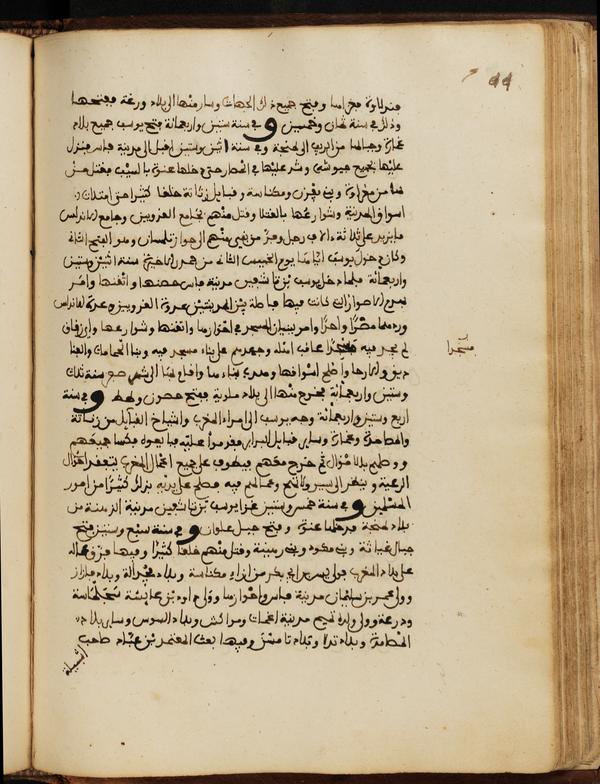 فندلاوة فحرامها وفتح جميع ذلك الجهات وسار منها الى بلاد ورغة ففتحها
وذلك في سنة ثمان وخمسين وفي سنة ستين واربعمائة فتح يوسف جميع بلاد
غمارة وجبالها من الريف الى طنجة وفي سنة اثنين وستين اقبل الى مدينة فاس فنزل
عليها بجميع جيوشه وشد عليها في الحصار حتى دخلها عنوة بالسيف فقتل من
بها من مغراوة وبني يفرن ومكناسة وقبايل زناتة خلقا كثيرا حتى امتلات
اسواق المدينة وشوارعها بالقتلا وقتل منهم بجامع القرويين وجامع الاندلس
ما يزيد على ثلاثة ءالاف رجل وفر من بقي منهم الى احواز تلمسان وهو الفتح الثانى
وكان دخول يوسف اياها يوم الخميس الثانى من جمدى الاخيرة سنة اثنين وستين
واربعمائة فلما دخل يوسف بن تاشفين مدينة فاس حصنها واتقنها وامر
بهدم الاسوار التى كانت فيها فاصلة بين المدينتين عدوة القرويين وعدوة الاندلس
وردهما مصرا واحدا وامر ببنيان المسجد في احوازها واتقنها وشوارعها واي زقاق
لم يجد فيه مسجدا عاقب اهله وجبرهم على بناء مسجد فيه وبنا الحمامات والفنا
دق والارحا واصلح اسواقها وهدى بناءها واقام بها الى شهر صفر سنة ثلث
وستين واربعمائة فخرج منها الى بلاد ملوية ففتح حصون وطاط وفي سنة
اربع وستين واربعمائة وجه يوسف الى امراء المغرب واشياخ القبايل من زناتة
والمصامدة وغمارة وساير قبايل البرابر فقدموا عليه فبايعوه فكسا جميعهم
ووصلهم بالاموال ثم خرج معهم يطوف على جميع اعمال المغرب يتفقد احوال
الرعية وينظر الى سير ولاتهم وعمالهم فيه فصلح على يديه بذلك كثيرا من امور
المسلمين وفي سنة خمس وستين غزا يوسف بن تاشفين مدينة الدمنة من
بلاد طنجة فدخلها عنوة وفتح جبل علودان وفي سنة سبع وستين فتح
جبال غياثة وبني مكود وبني رهينة وقتل منهم خلقا كثيرا وفيها فرق عماله
على بلاد المغرب فولى سير بن ابي بكر مدائن مكناسة وبلاد مكلالة وبلاد فازاز
وولى عمر بن سليمان مدينة فاس واحوازها وولى داود بن عايشة سجلماسة
ودرعة وولى ولده تميم مدينة اغمات ومراكش وبلاد السوس وساير بلاد
المصامدة وبلاد تدلا وبلاد تامسنا وفيها بعث المعتمد بن عباد صاحب
اشبيلة
مسجدا